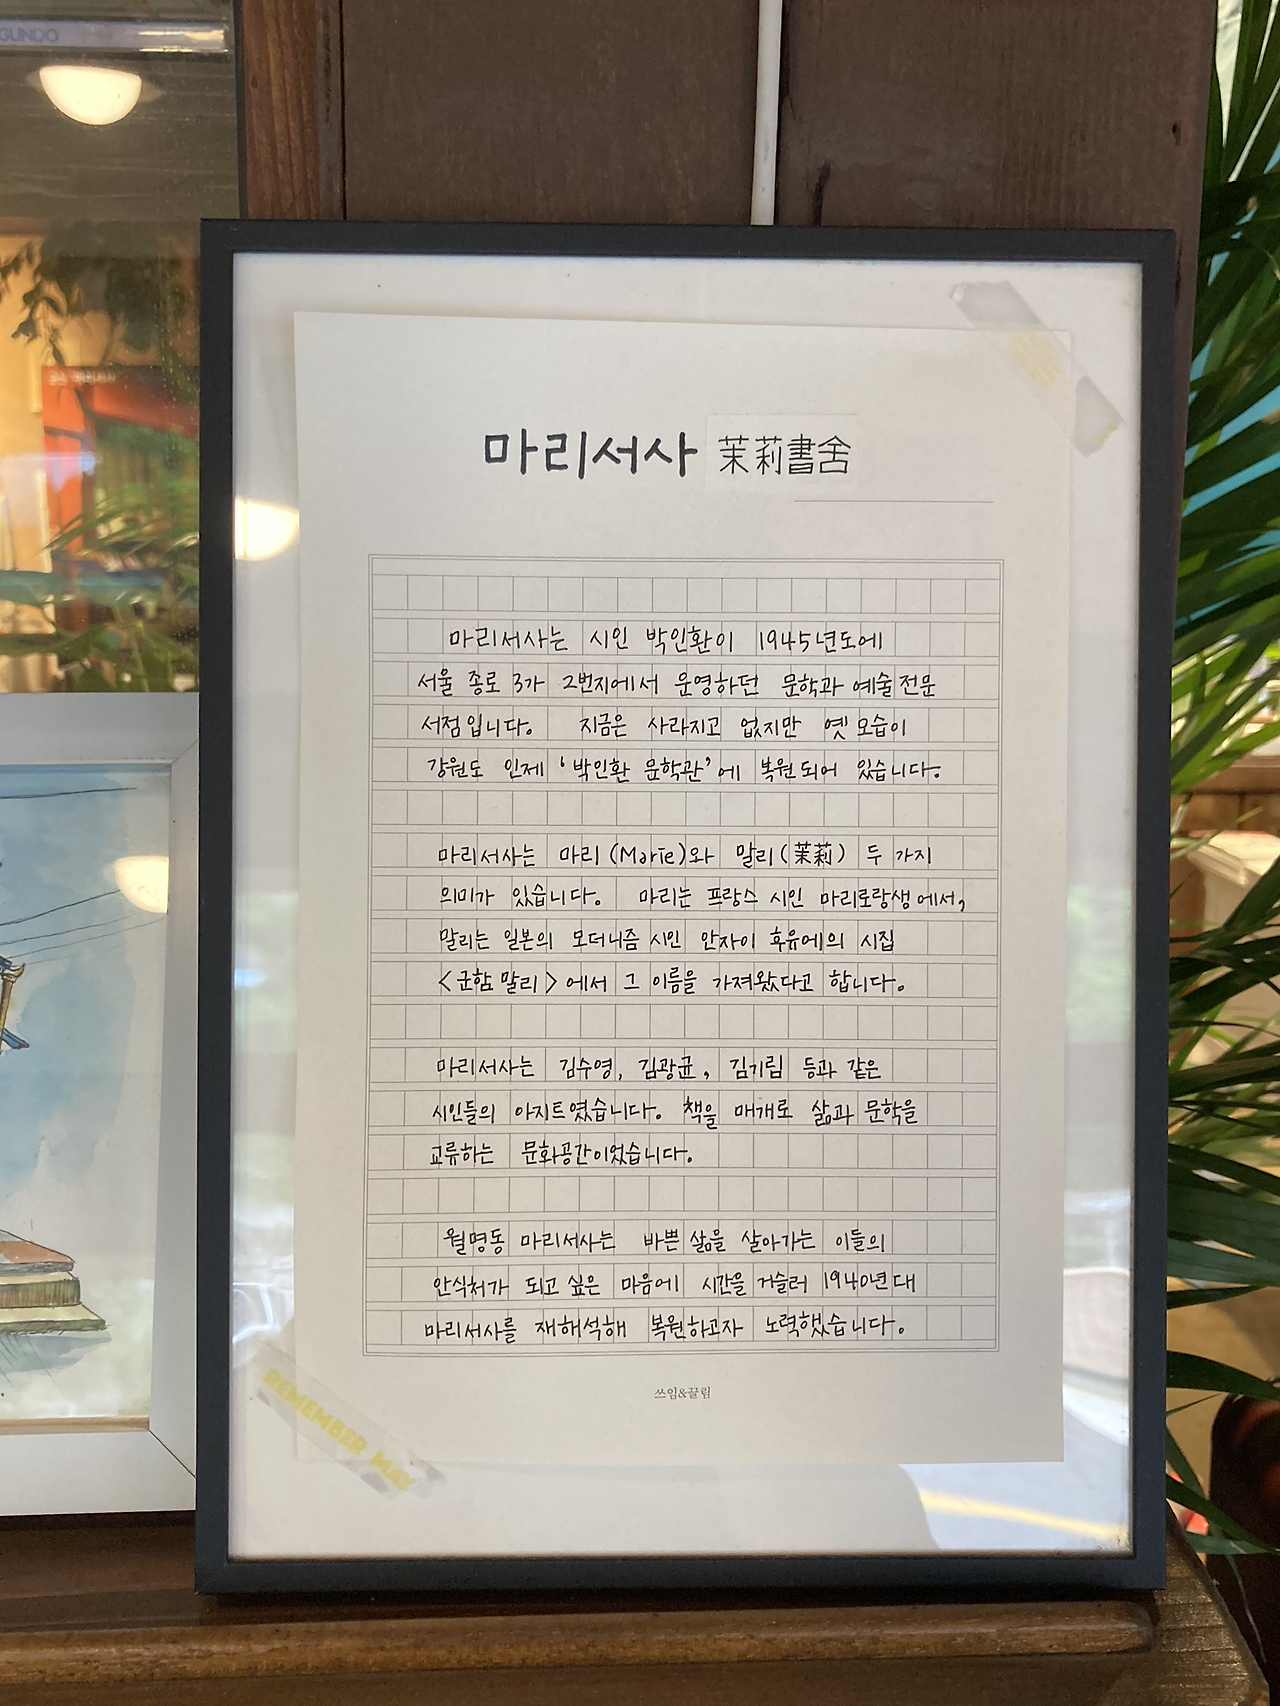 GUNDO
마리서사 茉莉書舍
마리서사는 시인 박인환이 1945년도에
서울 종로 3가 2번지에서 운영하던 문학과 예술 전문
서점입니다. 지금은 사라지고 없지만 옛 모습이
강원도 인제 '박인환 문학관'에 복원되어 있습니다.
마리서사는 마리(Marie)와 말리(茉莉) 두 가지
의미가 있습니다. 마리는 프랑스 시인 마리로랑생에서,
말리는 일본의 모더니즘 시인 안자이 후유에의 시집
<군함 말리>에서 그 이름을 가져왔다고 합니다.
마리서사는 김수영, 김광균, 김기림 등과 같은
시인들의 아지트였습니다. 책을 매개로 삶과 문학을
교류하는 문화공간이었습니다.
월명동 마리서사는 바쁜 삶을 살아가는 이들의
안식처가 되고 싶은 마음에 시간을 거슬러 1940년대
마리서사를 재해석해 복원하고자 노력했습니다.
쓰임&끌림
REMEMBER MAY